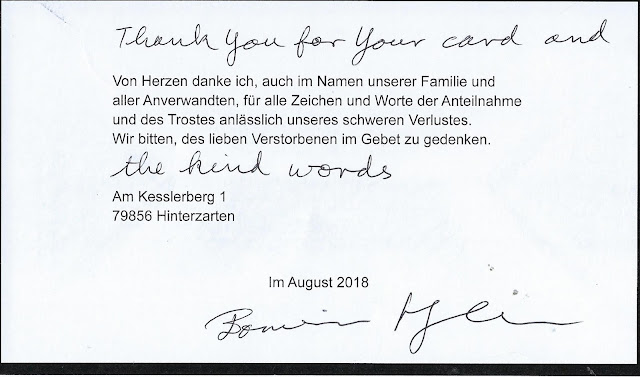 Thank you for your card and
Von Herzen danke ich, auch im Namen unserer Familie und
aller Anverwandten, für alle Zeichen und Worte der Anteilnahme
und des Trostes anlässlich unseres schweren Verlustes.
Wir bitten, des lieben Verstorbenen im Gebet zu gedenken.
the kind words
Am Kesslerberg 1
79856 Hinterzarten
Im August 2018